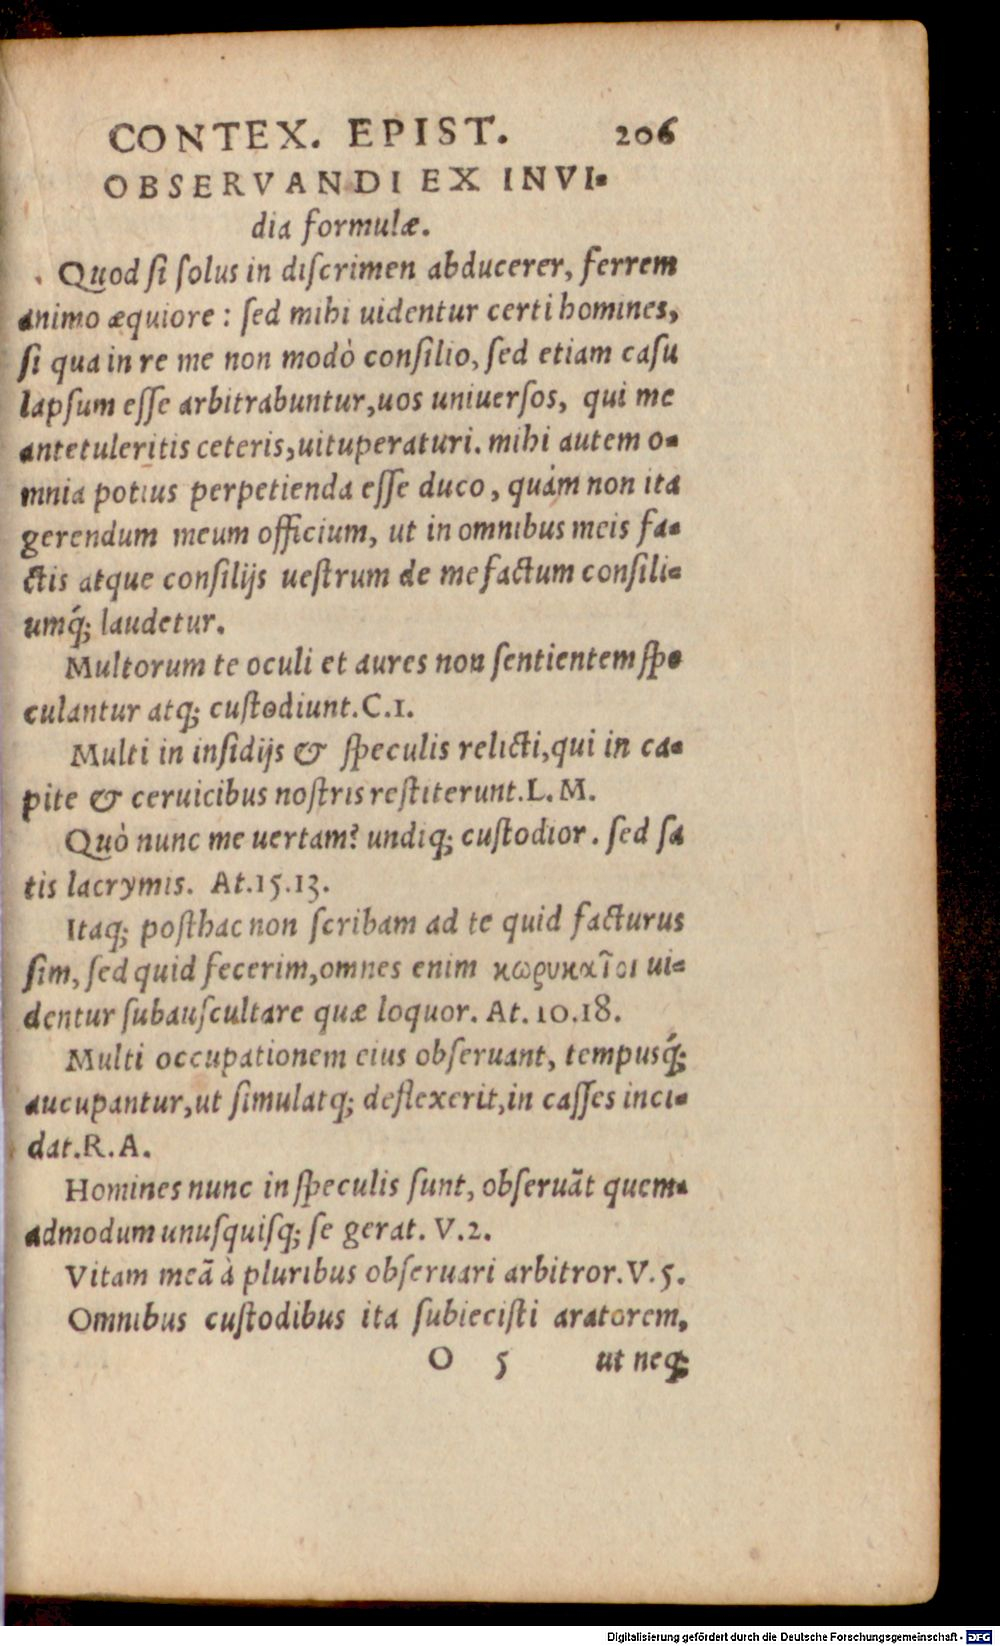 CONTEX. EPIST. 206
OBSERVANDI EX INVI-
dia formulæ.
Quod ſi ſolus in diſcrimen abducerer, ferrem
animo æquiore : ſed mihi uidentur certi homines,
ſi qua in re me non modò conſilio, ſed etiam caſu
lapſum eſſe arbitrabuntur, uos uniuerſos, qui me
antetuleritis ceteris, uituperaturi. mihi autem o-
mnia potius perpetienda eſſe duco, quàm non ita
gerendum meum officium, ut in omnibus meis fa-
ctis atque conſilijs ueſtrum de me factum conſili-
umq́; laudetur.
Multorum te oculi et aures non ſentientem ſpe
culantur atq; cuſtodiunt. C.1.
Multi in inſidijs & ſpeculis relicti, qui in ca-
pite & ceruicibus noſtris reſtiterunt. L. M.
Quò nunc me uertam? undiq; cuſtodior. ſed ſa
tis lacrymis. At.15.13.
Itaq; poſthac non ſcribam ad te quid facturus
ſim, ſed quid fecerim, omnes enim κωρυκαῖοι ui-
dentur ſubauſcultare quæ loquor. At. 10.18.
Multi occupationem eius obſeruant, tempusq́;
aucupantur, ut ſimulatq; deflexerit, in caſſes inci-
dat. R. A.
Homines nunc in ſpeculis ſunt, obſeruãt quem-
admodum unuſquiſq; ſe gerat. V.2.
Vitam meã à pluribus obſeruari arbitror. V.5.
Omnibus cuſtodibus ita ſubieciſti aratorem,
O 5 ut neq;
Digitalisierung gefördert durch die Deutsche Forschungsgemeinschaft - DFG